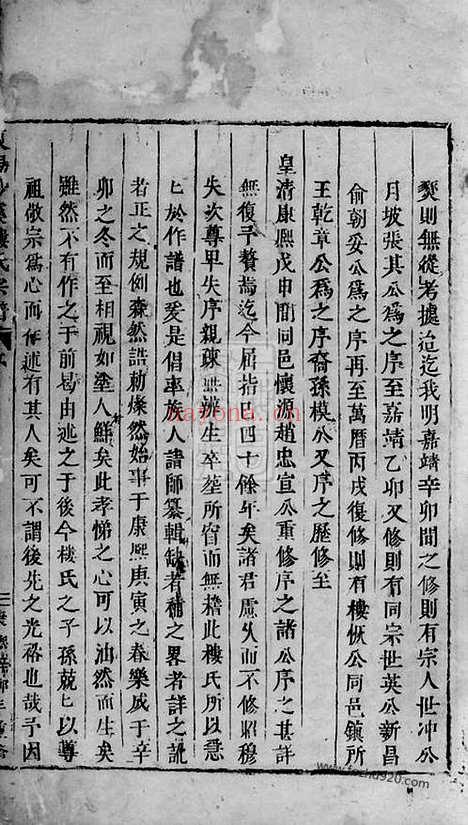 燹則無從考據迨迄我明嘉靖辛卯間之修則有宗人世冲公
月坡張其公爲之序至嘉靖乙卯又修則有同宗世英公新昌
俞朝妥公爲之序再至萬曆丙戌復修則有樓烋公同邑鎮所
王乾章公爲之序裔孫模公又序之歷修至
皇清康熙戊申間同邑懷源趙忠宣公重修序之諸公序之甚詳
無復予贅焉迄今屈指已四十餘年矣諸君慮久而不修昭穆
失次尊卑失序親疎無辨生卒塋所窅而無稽此樓氏所以急
匕於作譜也爰是倡率族人請師纂輯缺者補之畧者詳之訛
者正之規例森然誥勅燦然始事于康熙庚寅之春樂成于辛
卯之冬而至相視如塗人鮮矣此孝悌之心可以油然而生矣
雖然不有作之于前曷由述之于後今樓氏之子孫兢匕以尊
祖敬宗爲心而作述有其人矣可不謂後先之光裕也哉予因
樓氏宗譜
康熙辛卯年重脩
nayona.cn
www.fochu920.com